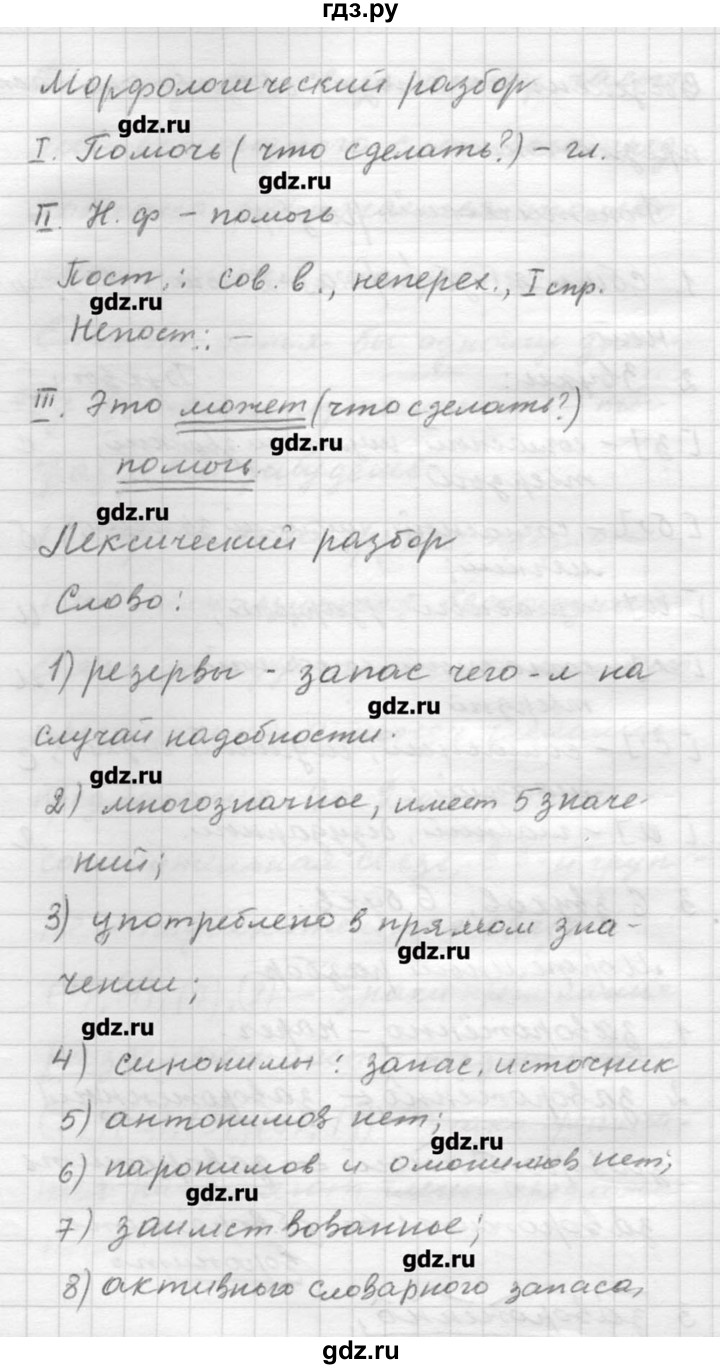 гдз.ру
Морфологический разбор
gdz.ru
I. Помочь (что сделать?) – гл.
gdz.ru
II. Н.ф – помочь
Пост.: сов.в., неперех., I спр.
gdz.ru
Непост.: –
III. Это может (что сделать?)
gdz.ru
помочь.
gdz.ru
Лексический разбор
Слово:
1) резервы - запас чего-л на
gdz.ru
случай надобности.
gdz.ru
2) многозначное, имеет 5 значе-
ний;
3) употреблено в прямом зна-
gdz.ru
чении;
gdz.ru
4) синонимы: запас, источник
5) антонимов нет;
gdz.ru
6) паронимов и омонимов нет;
gdz.ru
7) заимствованное;
gdz.ru
8) активного словарного запаса,
gdz.ru